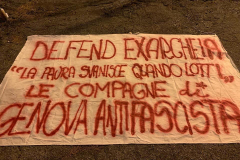 DEFEND EXARCHEIA
"LA PAURA SVANISCE QUANDO LOTTI"
LE COMPAGNE di
GENOVA ANTIFASCISTA